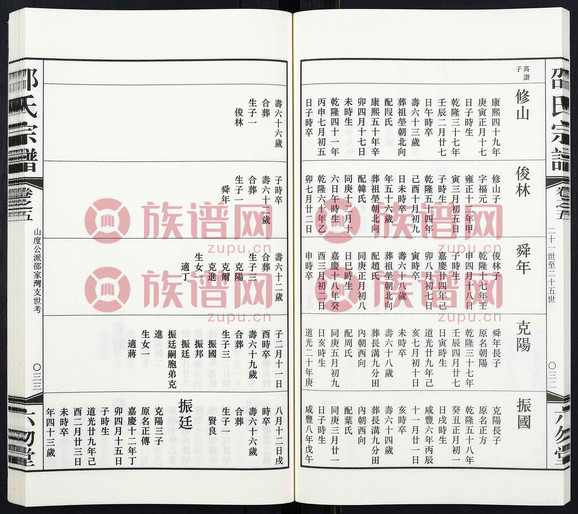 邵氏宗譜
卷之五
二十一世至二十五世
〇三二
六勿堂
高譜子
修山
康熙四十九年
庚寅正月十七
日子時生
乾隆三十七年
壬辰二月廿七
日午時卒
壽六十三歲
葬祖塋朝北向
配段氏
康熙五十年辛
卯四月十七日
未時生
乾隆四十一年
丙申七月初五
日子時卒
壽六十六歲
合葬
生子一
俊林
俊林
修山子
字福元
雍正十二年甲
寅三月初五日
子時生
乾隆五十四年
己酉十月初九
日未時卒
年五十六歲
葬祖塋朝北向
配韓氏
同庚二月十
六日午時生
乾隆六十年乙
卯七月廿二日
子時卒
壽六十二歲
合葬
生子一
舜年
舜年
俊林子
乾隆十七年壬
申四月十八日
子時生
嘉慶廿四年己
卯八月初七日
寅時卒
壽六十八歲
葬祖塋朝北向
配趙氏
同庚正月初八
日子時生
嘉慶十八年癸
酉三月初三日
申時卒
壽六十二歲
合葬
生子三
克陽
克爾
克進
生女一
適丁
克陽
舜年長子
原名朝陽
乾隆三十七年
壬辰四月廿七
日寅時生
道光廿九年己
亥七月初十日
未時卒
壽六十八歲
葬長溝九分田
內朝西向
配周氏
同庚五月初九
日亥時生
道光二十年庚
子二月十一日
酉時卒
壽六十九歲
合葬
生子三
振國
振邦
振廷
振廷嗣胞弟克
進
生女一
適蔣
振國
克陽長子
原名正方
乾隆五十八年
癸丑正月初九
日戌時生
咸豐六年丙辰
十一月廿一日
亥時卒
壽六十四歲
葬長溝九分田
內朝西向
配葉氏
同庚三月廿一
日子時生
咸豐八年戊午
八月十二日戌
時卒
壽六十六歲
合葬
生子一
賢良
振廷
克陽三子
原名正傳
嘉慶十二年丁
卯四月十五日
子時生
道光廿九年己
酉二月廿三日
未時卒
年四十三歲
邵氏宗譜
卷之五
山度公派邵家灣支世考
〇三三
六勿堂
族谱网
zupu.cn